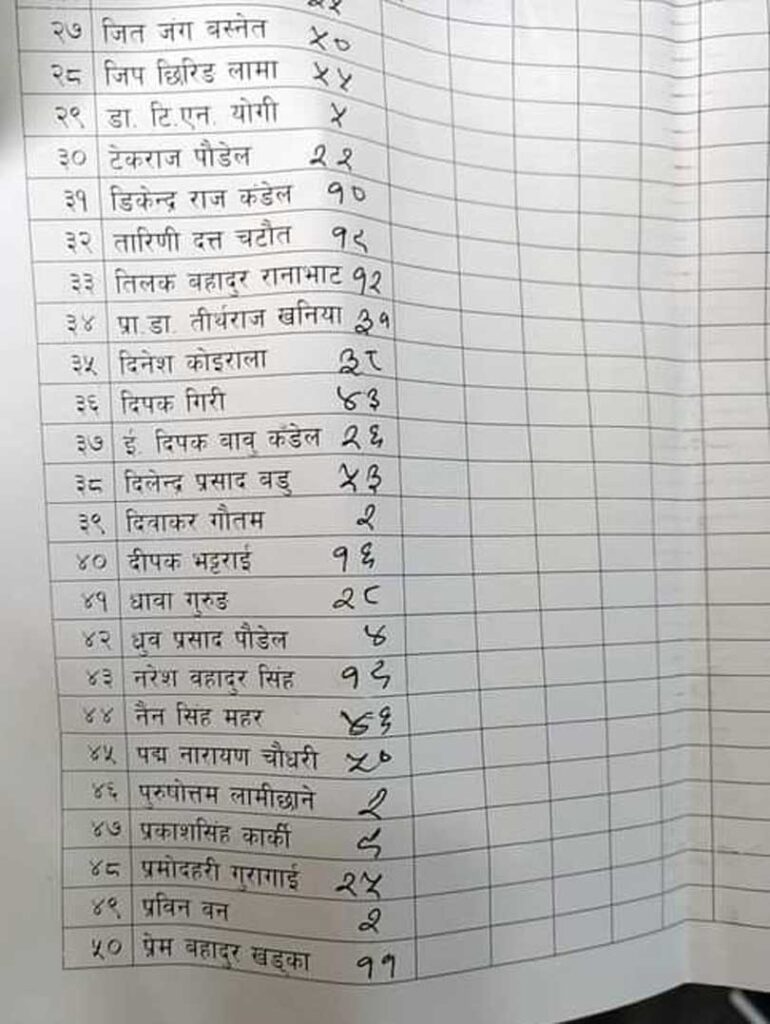 २७ जित जंग वस्नेत ५०
२८ जिप छिरिङ लामा ५५
२९ डा. टि.एन. योगी ५
३० टेकराज पौडेल २२
३१ डिकेन्द्र राज कंडेल १०
३२ तारिणी दत्त चटौत १९
३३ तिलक वहादुर रानाभाट १२
३४ प्रा.डा. तीर्थराज खनिया ३१
३५ दिनेश कोइराला ३८
३६ दिपक गिरी ४३
३७ ई. दिपक वावु कँडेल २६
३८ दिलेन्द्र प्रसाद वडु ५३
३९ दिवाकर गौतम २
४० दीपक भट्टराई १६
४१ धावा गुरुङ २८
४२ ध्रुव प्रसाद पौडेल ४
४३ नरेश वहादुर सिंह १९
४४ नैन सिंह महर ४६
४५ पद्म नारायण चौधरी ५०
४६ पुरुषोत्तम लामीछाने २
४७ प्रकाशसिंह कार्की ९
४८ प्रमोदहरी गुरागाई २५
४९ प्रविन वन २
५० प्रेम वहादुर खड्का ११